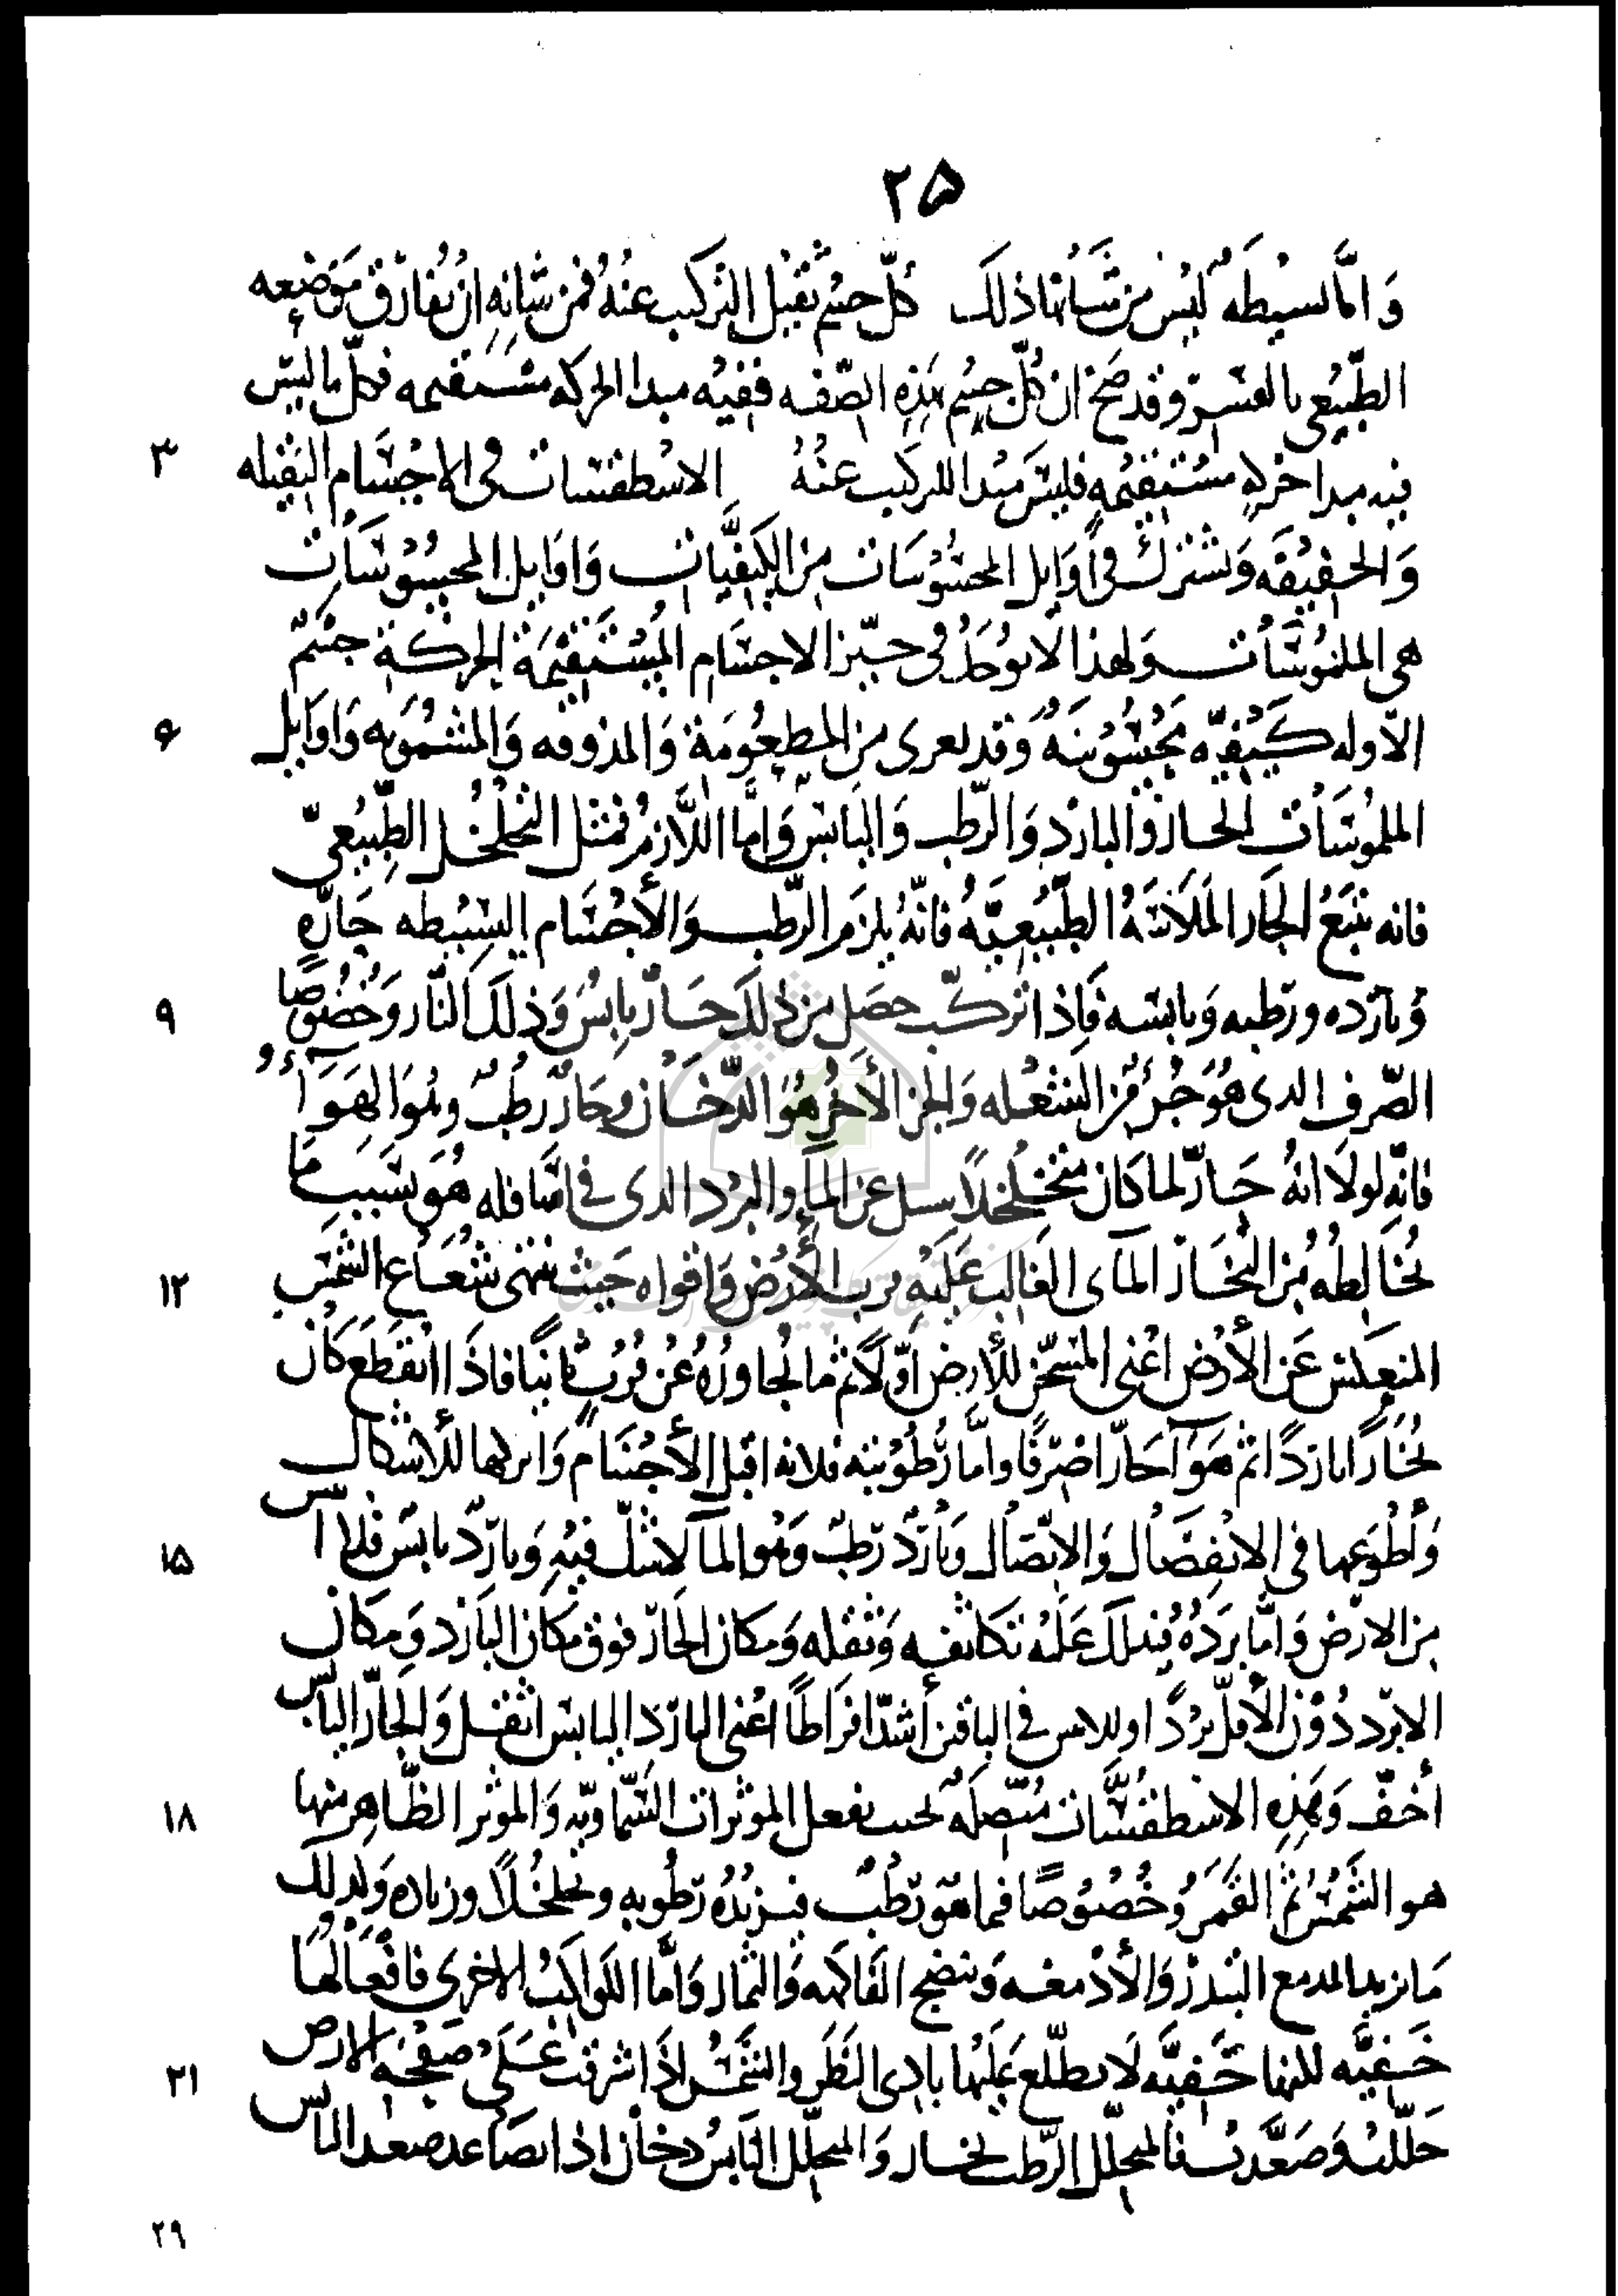 ٢٥
وَامَّا بسيطَه ليْس من شَأنها ذلك كلّ جسْم يقبل التركيب عنْهُ فمن شانِهِ ان يُفارق مَوضعه
الطّبيْعى بالقسْر وقد صَح ان كُلّ جسْم بهذِهِ الصّفه ففيْه مبدا الحركه مسْتقيمه فكلّ ما ليسَ
٣ فيه مبدا حركهٍ مسْتقيْمهٍ فليسَ مبْدا للتركيب عنْهُ الاسْطقسات فى الاجْسَام الثقيله
وَالخفيْفَه وَتشترك فى أوَايل المحسُوْسَات من الكيفيَّات وَاوَايل المحسُوْسَات
هى الملمُوسَات ولهذا لا يوُجَدُ فى حيّز الاجسَام المُسْتَقيْمَة الحركة جسْم
٦ الاوله كيْفيّه محْسُوْسَه وقد تعرى من المطعُومَة وَالمذوقه وَالمشمُوْمه وَاوَايل
الملموسَات الحار وَالبارد وَالرّطب وَاليابس وَامَّا اللَّازم فمثل التخلخل الطّبيْعىّ
فانه يتبَعُ الحار المَلَاسَةُ الطّبيْعيَّهُ فانّهُ يلزم الرّطب وَالأجْسَام البسيْطه حارّه
٩ وَبارده ورطبه وَيابسه فَاِذا تركّب حصَل من ذلك حَارّ يابسٌ وَذلك النّار وَخُصُوصًا
الصّرف الدى هُوَ جُزْءٌ من الشعْله وَالجز الأخرُ هُوَ الدّخان وحارٌّ رطْبٌ وهُوَ الهَوَآءُ
فانّه لولَا انهُ حَارّ لما كان متخلخلًا عن المآ والبرْد الدى فى اسَافله هُوَ بسَببِ مَا
١٢ يُخَالطه من البُخَار الماى الغالب عَليْهِ بقرب الأرْض وَاقواه حَيث ينتهى شعَاع الشمس
المنعكس عَن الأرْض اعْنى المسَخّن للأرض اوّلًا ثم ما يُجاورُهُ عَن قُرْب ثانيًا فاذا انقَطع كان
بُخارًا باردًا ثم هَوآ حَارًّا صرْفًا وامَّا رُطُوْبته فلانه اقبل الأجْسَام وَاتركها للأشكال
١٥ وَأطْوعها فى الانْفصَال وَالاتّصال وَباردٌ رَطبٌ وَهُوَ المآ لا شكّ فيْهِ وَباردٌ يابسٌ فلا ايبس
من الارْض وَامَّا بَردُهُ فيدلك عَليْهِ تكاثفه وَثقله وَمكان الحَارّ فوق مكان البَارد وَمكان
الابرد دُوْن الأقلّ برْدًا فى الباقين أشدّ افرَاطًا اعْنى البارد اليابس اثقل وَالحارّ اليابس
١٨ أخفّ وَهَذِهِ الاسْطقسَّات لحسب بفعل الموثرات السّماوّيه وَالموثر الظّاهر منها
هو الشمْسُ ثم القَمَرُ وَخُصُوصًا فيما هوَ رَطْبٌ فيزيْدُهُ رَطُوبه وتخلخُلًا وزياده وَلذلك
مَا يزيد المد مع البَدر وَالأدْمغه وَينضج الفَاكهه وَالثمار وَامَّا الكواكب الاخرى فافْعَالها
٢١ خَفيَّه للنها خَفيَّه لَا يطّلع عَليْها بادى النَظَر والشَّمْس اذا اشرقت عَلَى صَفحَة الارض
حَللت وَصَعَّدت فالمحلّل الرّطب بخار وَالمتحلّل اليَابسُ دخان اذا تصَاعد صعد اليابس
٢٩